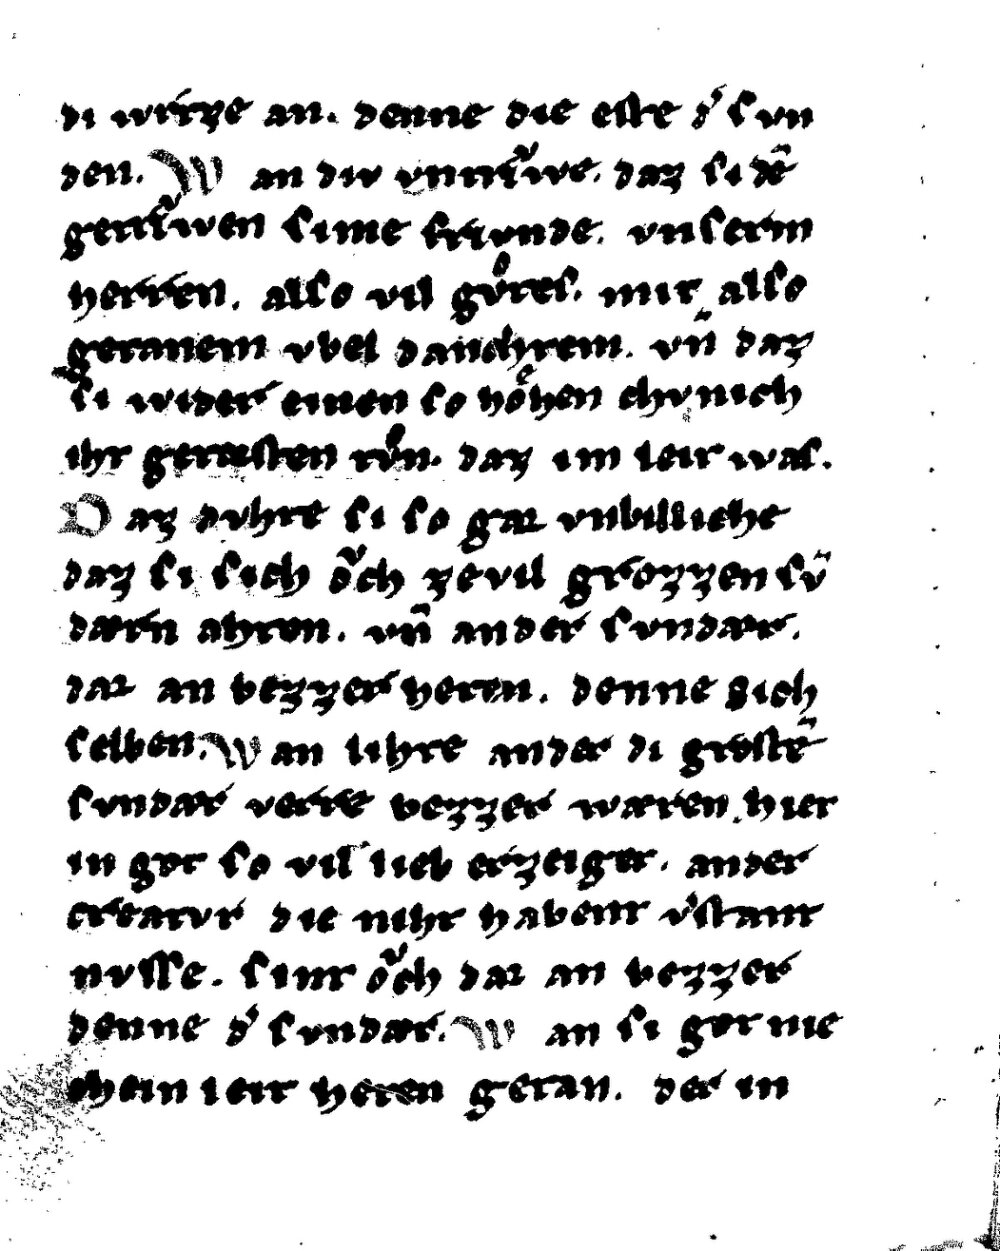 di wr̍zze an. denne die este d̍ svn
den. Wan div vntrͮwe. daz si dē
getrͮwen sime frivnde. vnserm
herren. also vil gvͦtes. mir also
getanem vbel danchtem. vn̄ daz
si wider einen so hohen chvnich
ihr getæsten tvͦn. daz im leit was.
Daz dvhte si so gar vnbilliche
daz si sich oͮch ze vil grozzen sv̄
dærn ahton. vn̄ ander svndær.
dar an bezzer heten. denne sich
selben. Wan lihte ander di grostē
svndær verre bezzer wæren, hier
in got so vil lieb erzeiget. ander
creatvr die niht habent v̍stant
nvsse. sint oͮch dar an bezzer
denne d̍ svndær. Wan si got nie
chein leit heten getan. der in